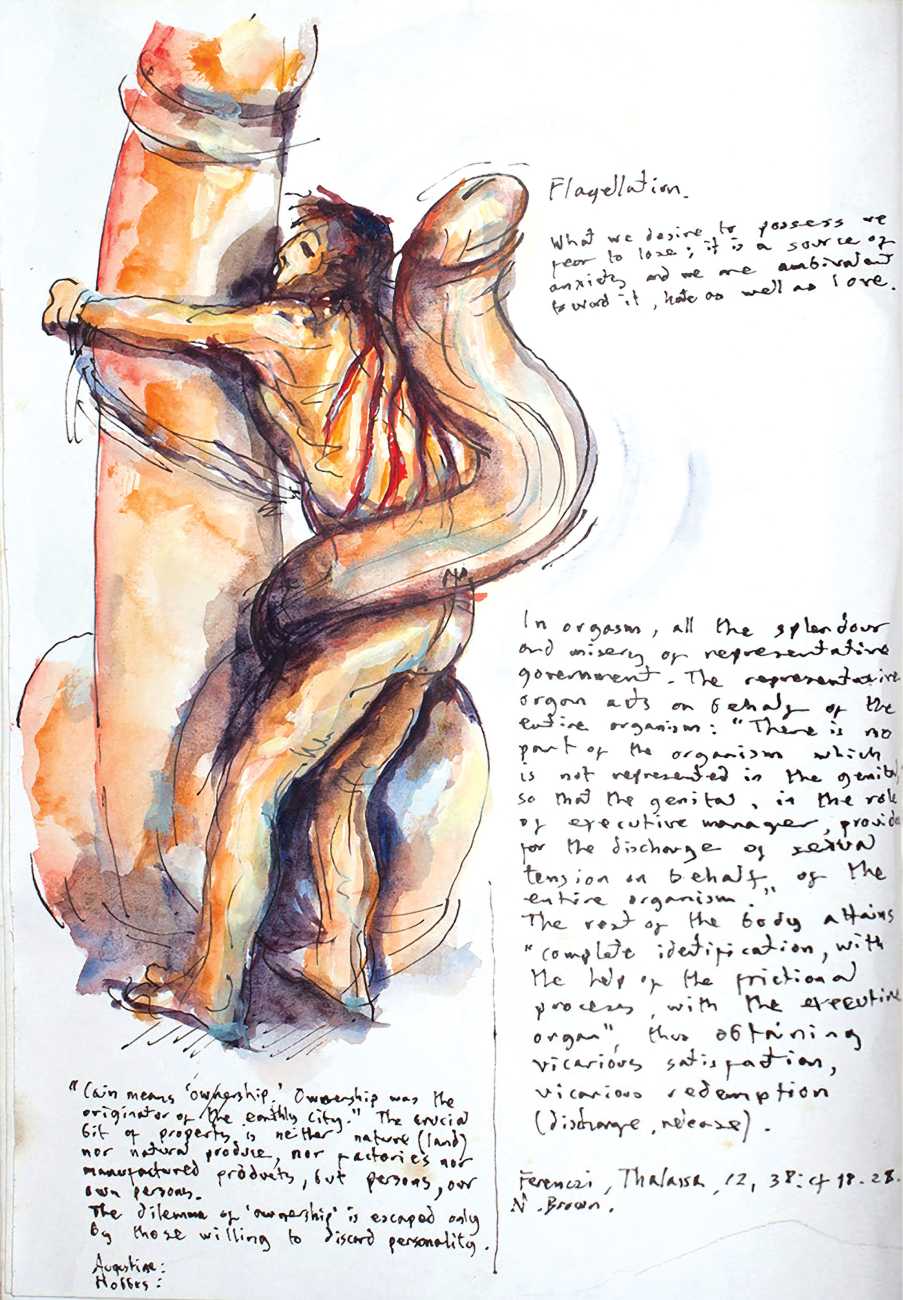 Flagellation.
What we desire to possess we
fear to lose; it is a source of
anxiety and we are ambivalent
toward it, hate as well as love.
In orgasm, all the splendour
and misery of representative
government. The representative
organ acts on behalf of the
entire organism: "There is no
part of the organism which
is not represented in the genital
so that the genital, in the role
of executive manager, provide
for the discharge of sexual
tension on behalf of the
entire organism."
The rest of the body attains
"complete identification, with
the help of the frictional
process, with the executive
organ", thus obtaining
vicarious satisfaction,
vicarious redemption
(discharge, release).
Ferenczi, Thalassa, 12, 38: cf 18. 28.
N. Brown.
"Cain means 'ownership.' Ownership was the
originator of the earthly city." The crucial
bit of property is neither nature (land)
nor natural produce, nor factories nor
manufactured products, but persons, our
own persons.
The dilemma of 'ownership' is escaped only
by those willing to discard personality.
Augustine:
Hobbes: